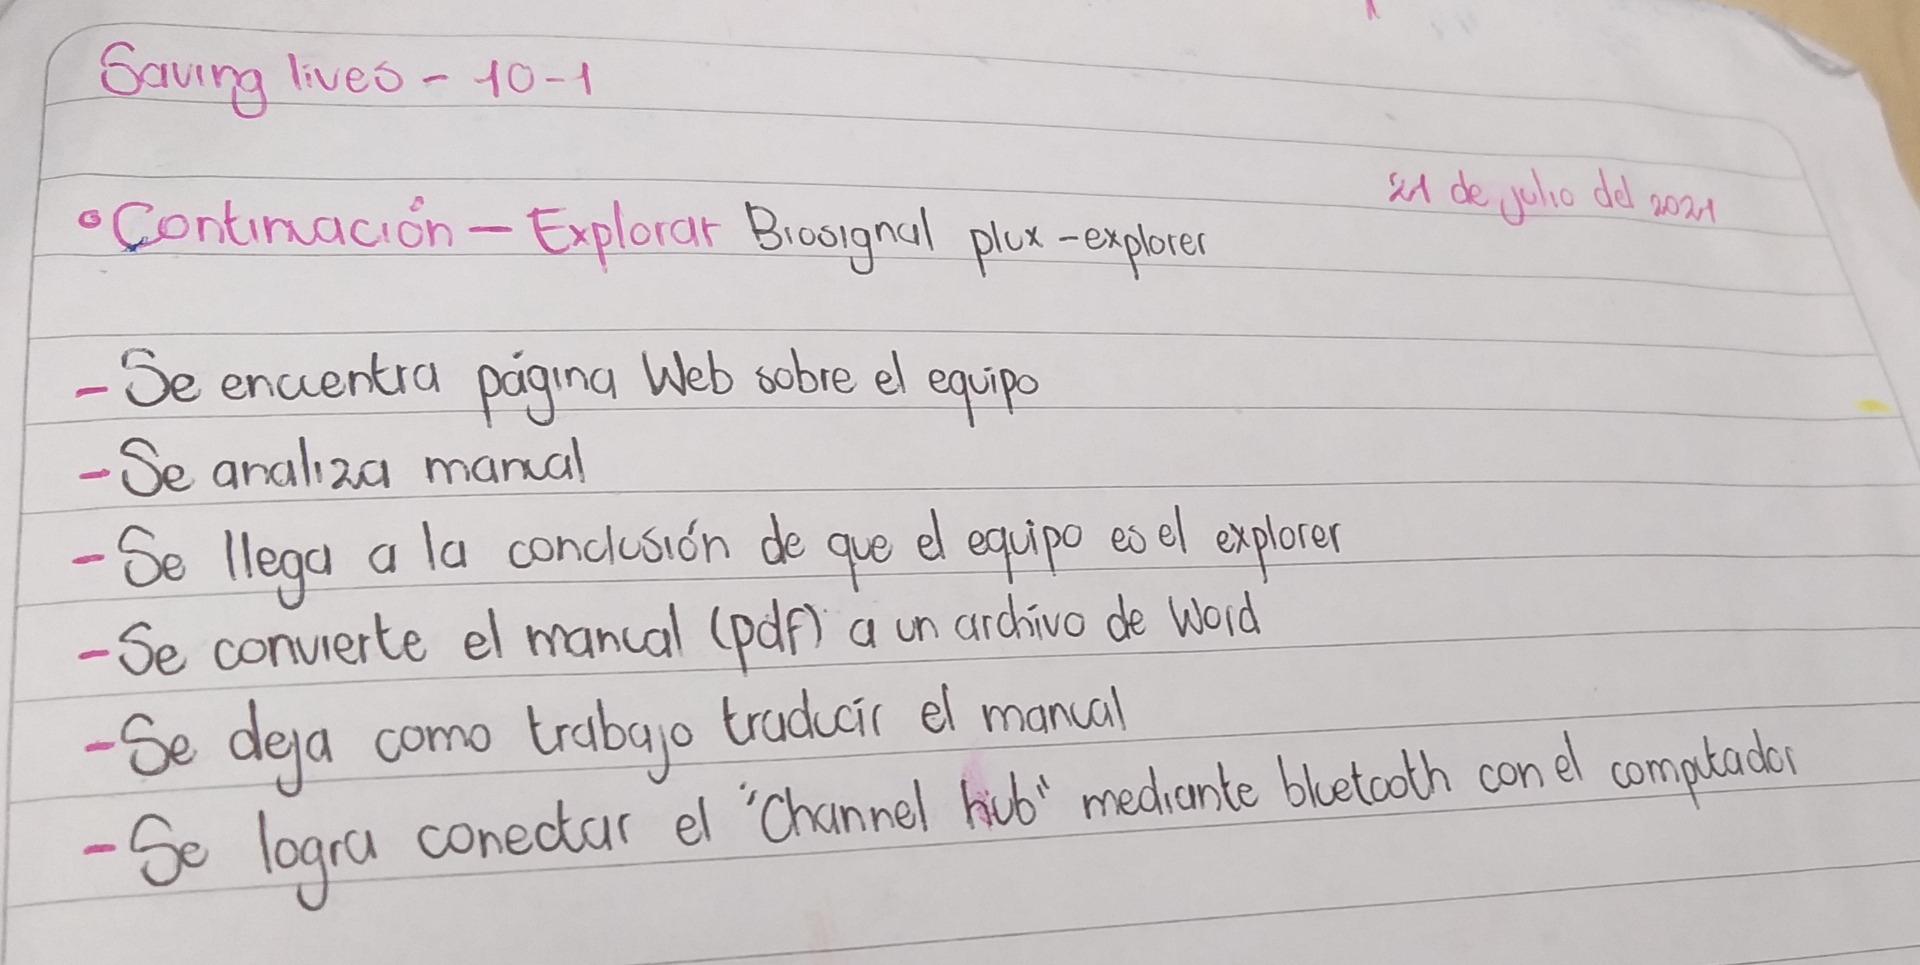 Saving lives - 10-1
21 de julio del 2021
• Continuación - Explorar Biosignal plux - explorer
- Se encuentra página Web sobre el equipo
- Se analiza manual
- Se llega a la conclusión de que el equipo es el explorer
- Se convierte el manual (pdf) a un archivo de Word
- Se deja como trabajo traducir el manual
- Se logra conectar el "Channel hub" mediante bluetooth con el computador